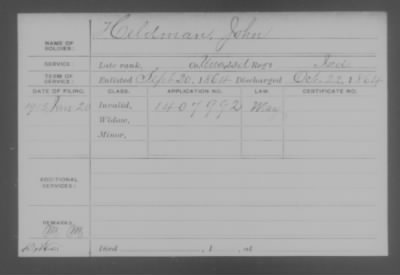 NAME OF SOLDIER: Heldman, John
SERVICE: Late rank, Co. Unassd Reg't Ind
TERM OF SERVICE: Enlisted Sept 20, 1864 Discharged Oct. 22, 1864
DATE OF FILING. CLASS. APPLICATION NO. LAW. CERTIFICATE NO.
1912 Jan 20 Invalid, 1407992
Widow,
Minor,
ADDITIONAL SERVICES:
REMARKS:
Died , 1 , at